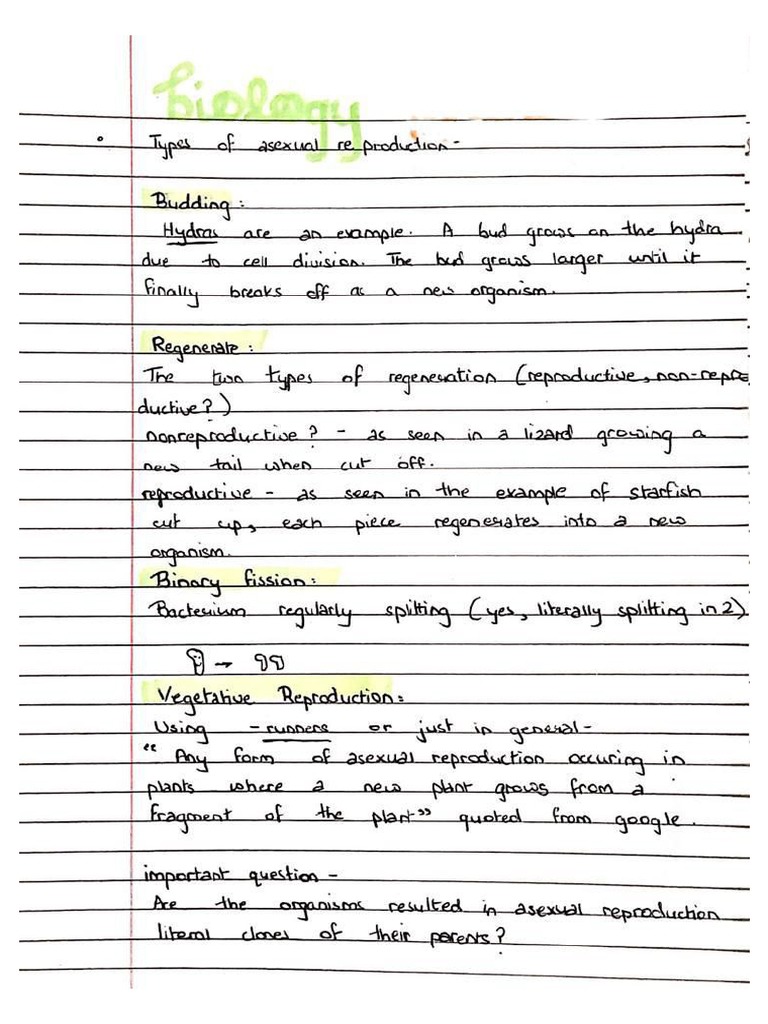 biology
Types of asexual reproduction-
Budding:
Hydras are an example. A bud grows on the hydra
due to cell division. The bud grows larger until it
finally breaks off as a new organism.
Regenerate:
The two types of regeneration (reproductive, non-repro
ductive?)
nonreproductive? - as seen in a lizard growing a
new tail when cut off.
reproductive - as seen in the example of starfish
cut up, each piece regenerates into a new
organism.
Binary fission:
Bacterium regularly splitting (yes, literally splitting in 2)
Vegetative Reproduction:
Using -runners or just in general-
"Any form of asexual reproduction occuring in
plants where a new plant grows from a
fragment of the plant" quoted from google.
important question -
Are the organisms resulted in asexual reproduction
literal clones of their parents?